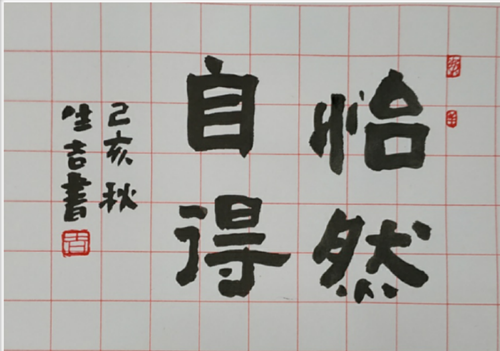 怡然
自得
己亥秋
生吉書
吉